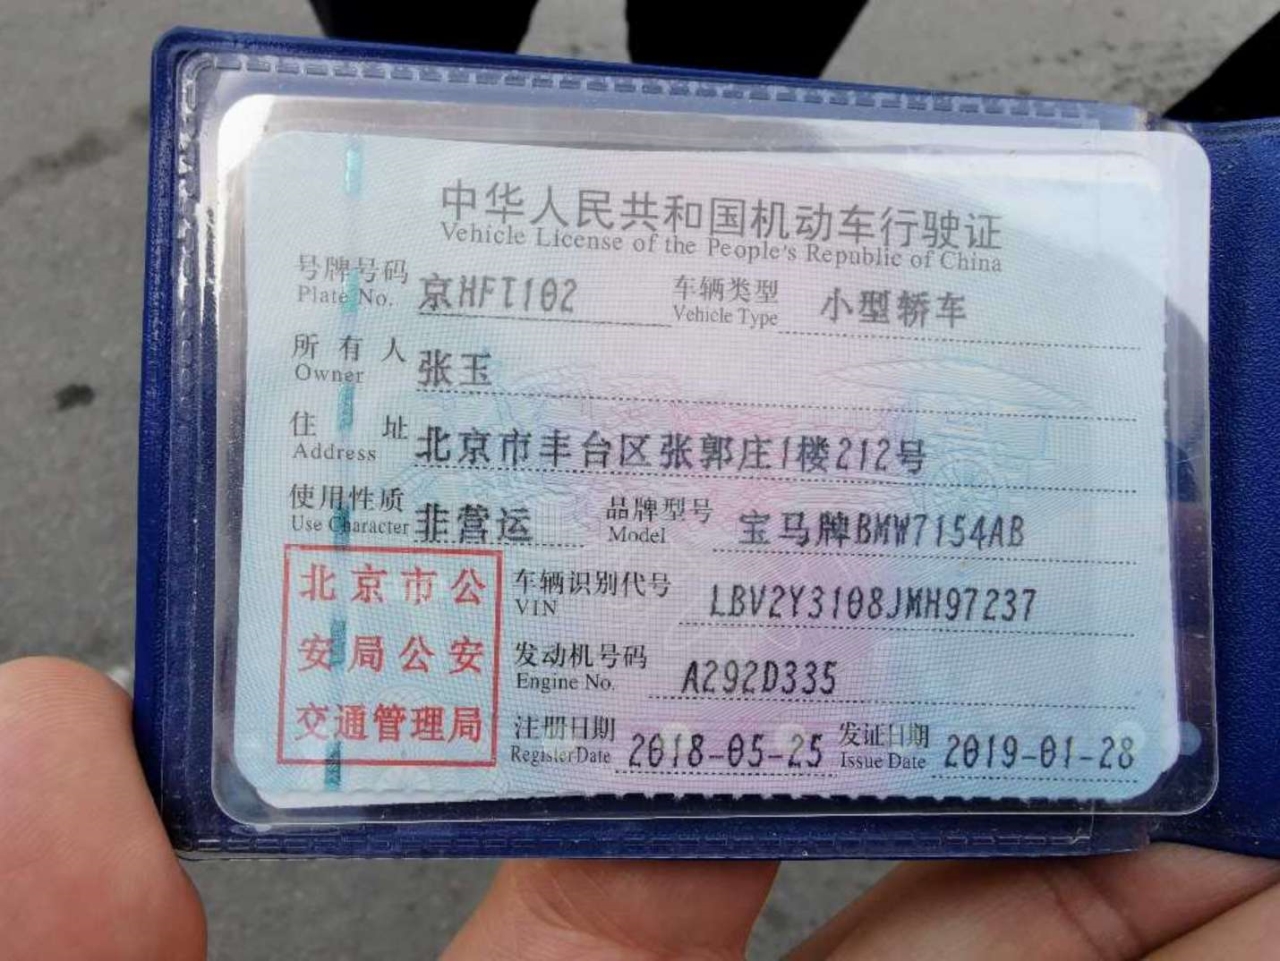 中华人民共和国机动车行驶证
Vehicle License of the People's Republic of China
号牌号码 京HFT102 车辆类型 小型轿车
Plate No. Vehicle Type
所有人 张玉
Owner
住址 北京市丰台区张郭庄1楼212号
Address
使用性质 非营运 品牌型号 宝马牌BMW7154AB
Use Character Model
北京市公
安局公安
交通管理局
车辆识别代号 LBV2Y3108JMH97237
VIN
发动机号码 A292D335
Engine No.
注册日期 2018-05-25 发证日期 2019-01-28
Register Date Issue Date